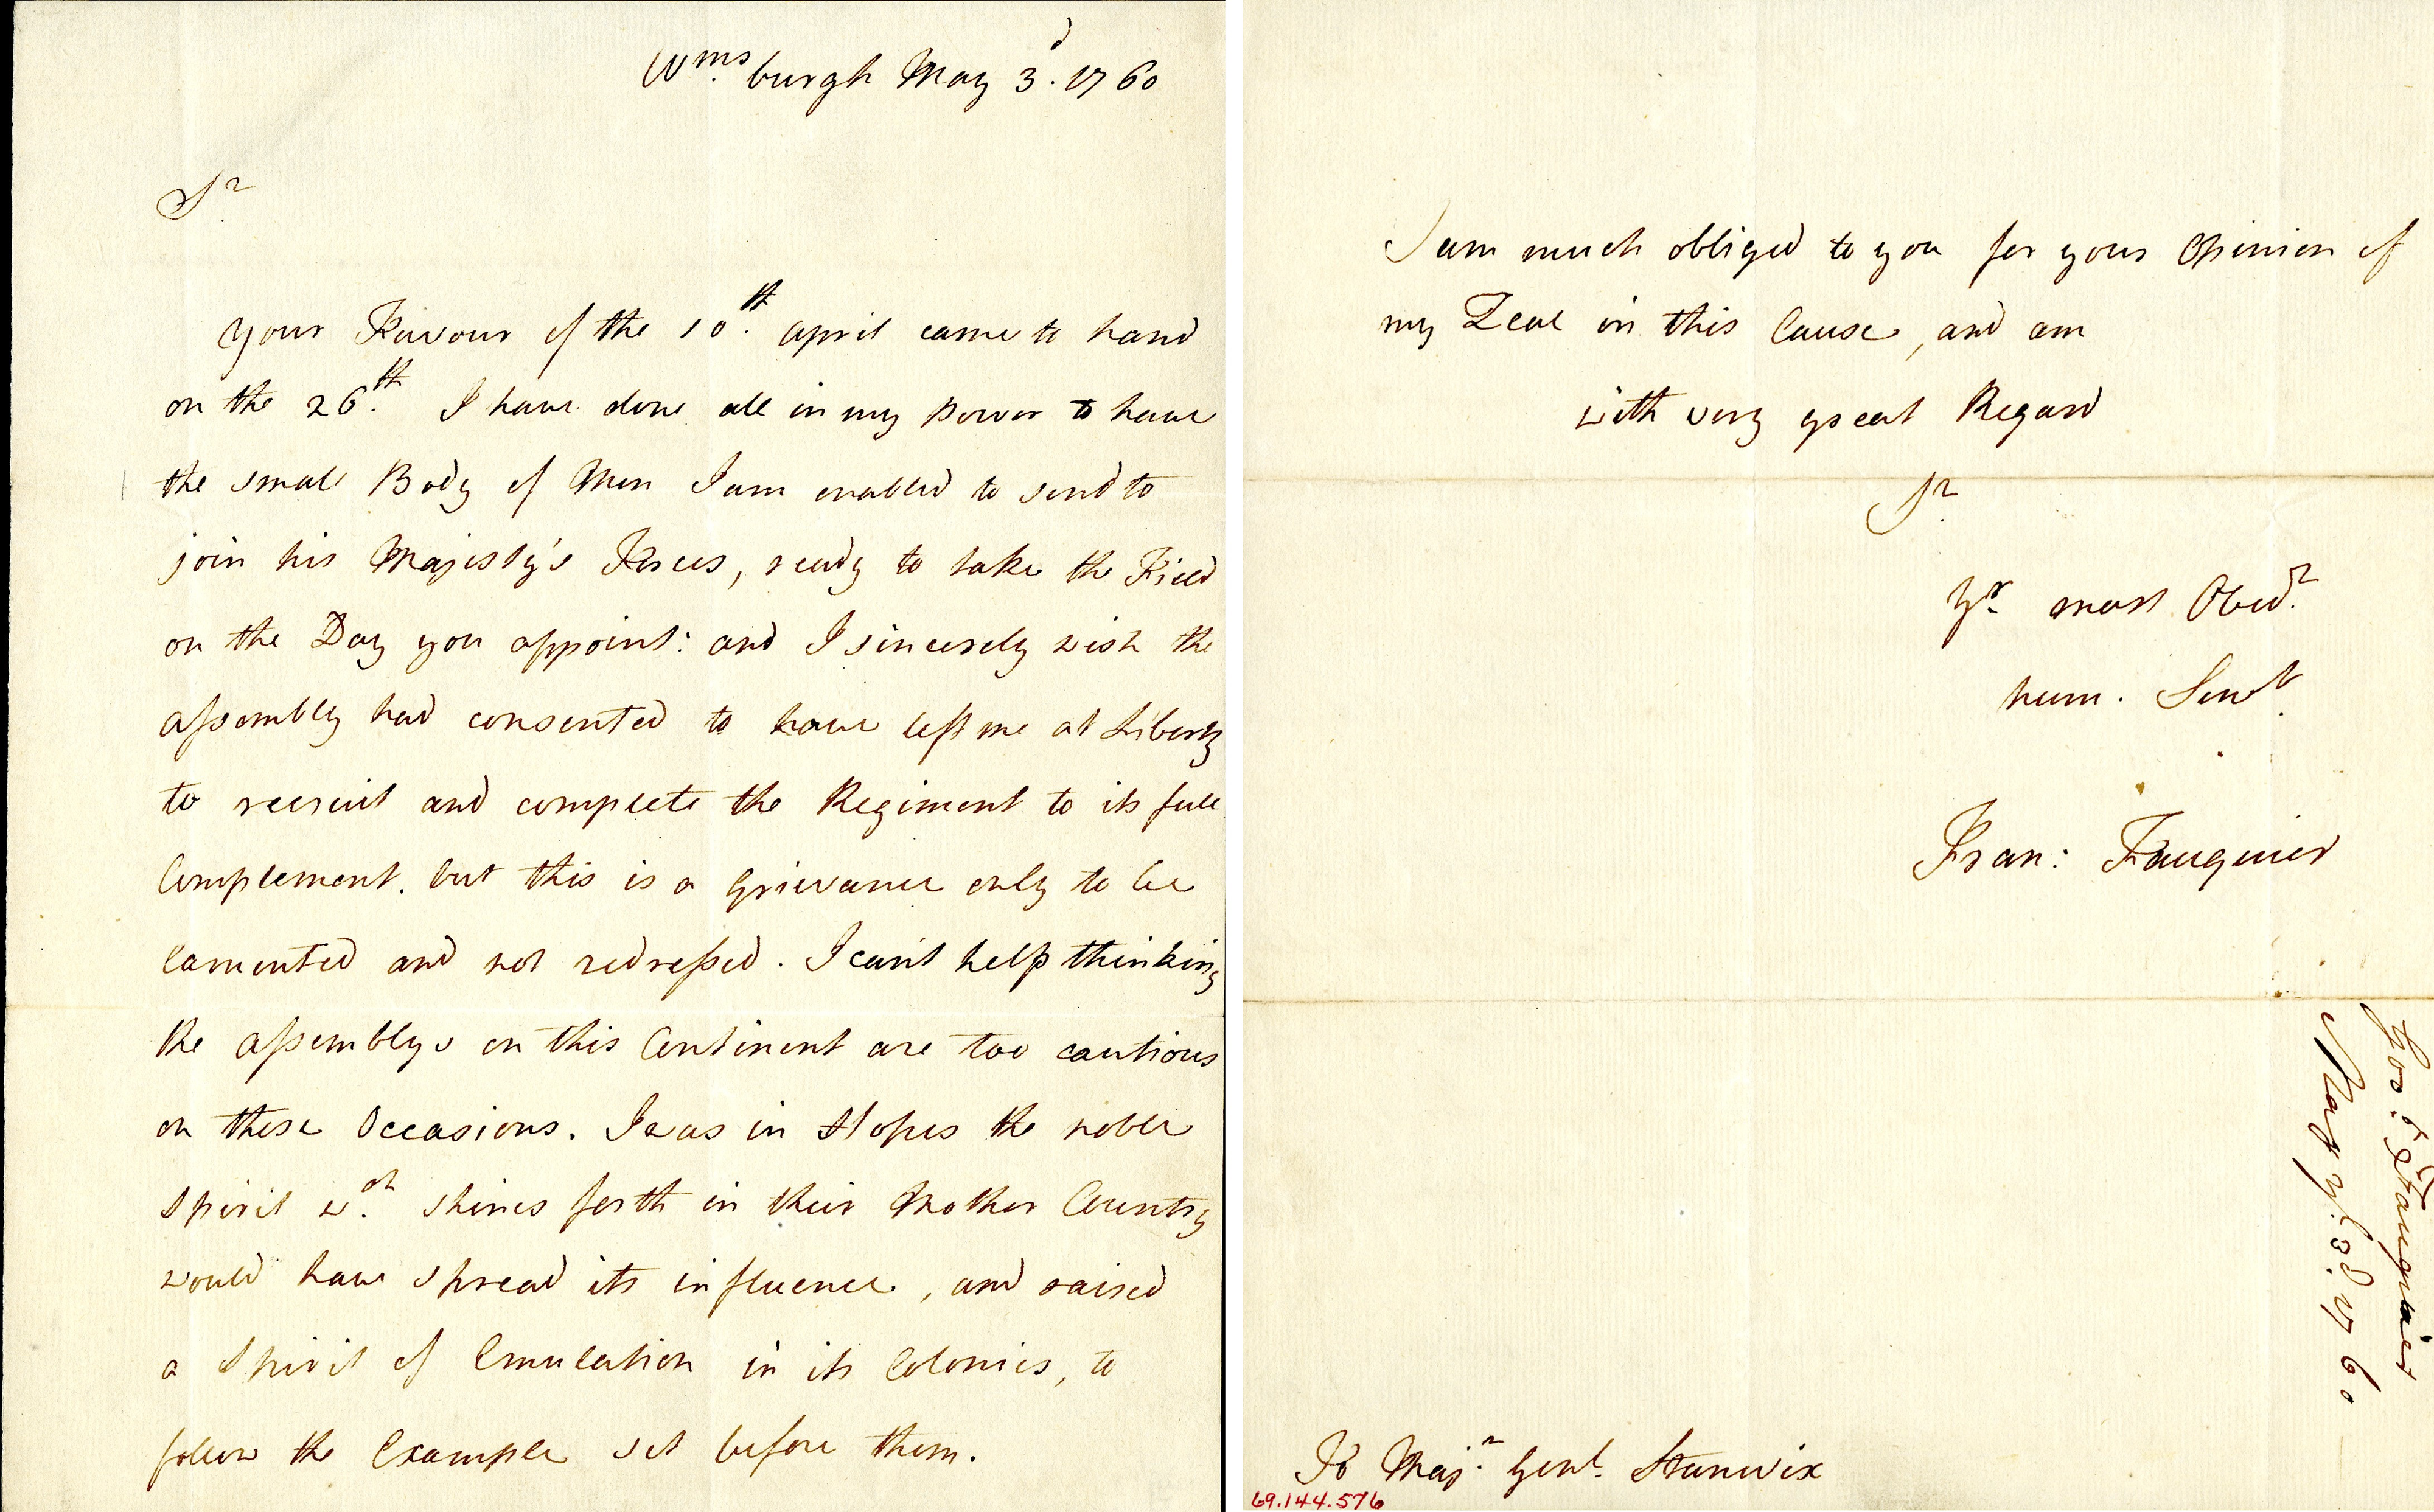 Wms. burgh May 3d. 1760
Sr.
Your Favour of the 10th. April came to hand
on the 26th. I have done all in my Power to have
the small Body of Men I am enabled to send to
join his Majesty's Forces, ready to take the Field
on the Day you appoint: and I sincerely wish the
Assembly had consented to have left me at Liberty
to recruit and complete the Regiment to its full
Complement. but this is a Grievance only to be
lamented and not redressed. I can't help thinking
the Assemblys on this Continent are too cautious
on these Occasions. I was in Hopes the noble
Spirit wch. shines forth in their Mother Country
would have spread its influence, and raised
a Spirit of Emulation in its Colonies, to
follow the Example set before them.
I am much obliged to you for your Opinion of
my Zeal in this Cause, and am
with very great Regard
Sr.
Yr. most Obedt.
hum. Servt.
Fran: Fauquier
Govr. Fauquier
May ye. 3d. 1760
To Majr. Genl. Stanwix
69.144.576